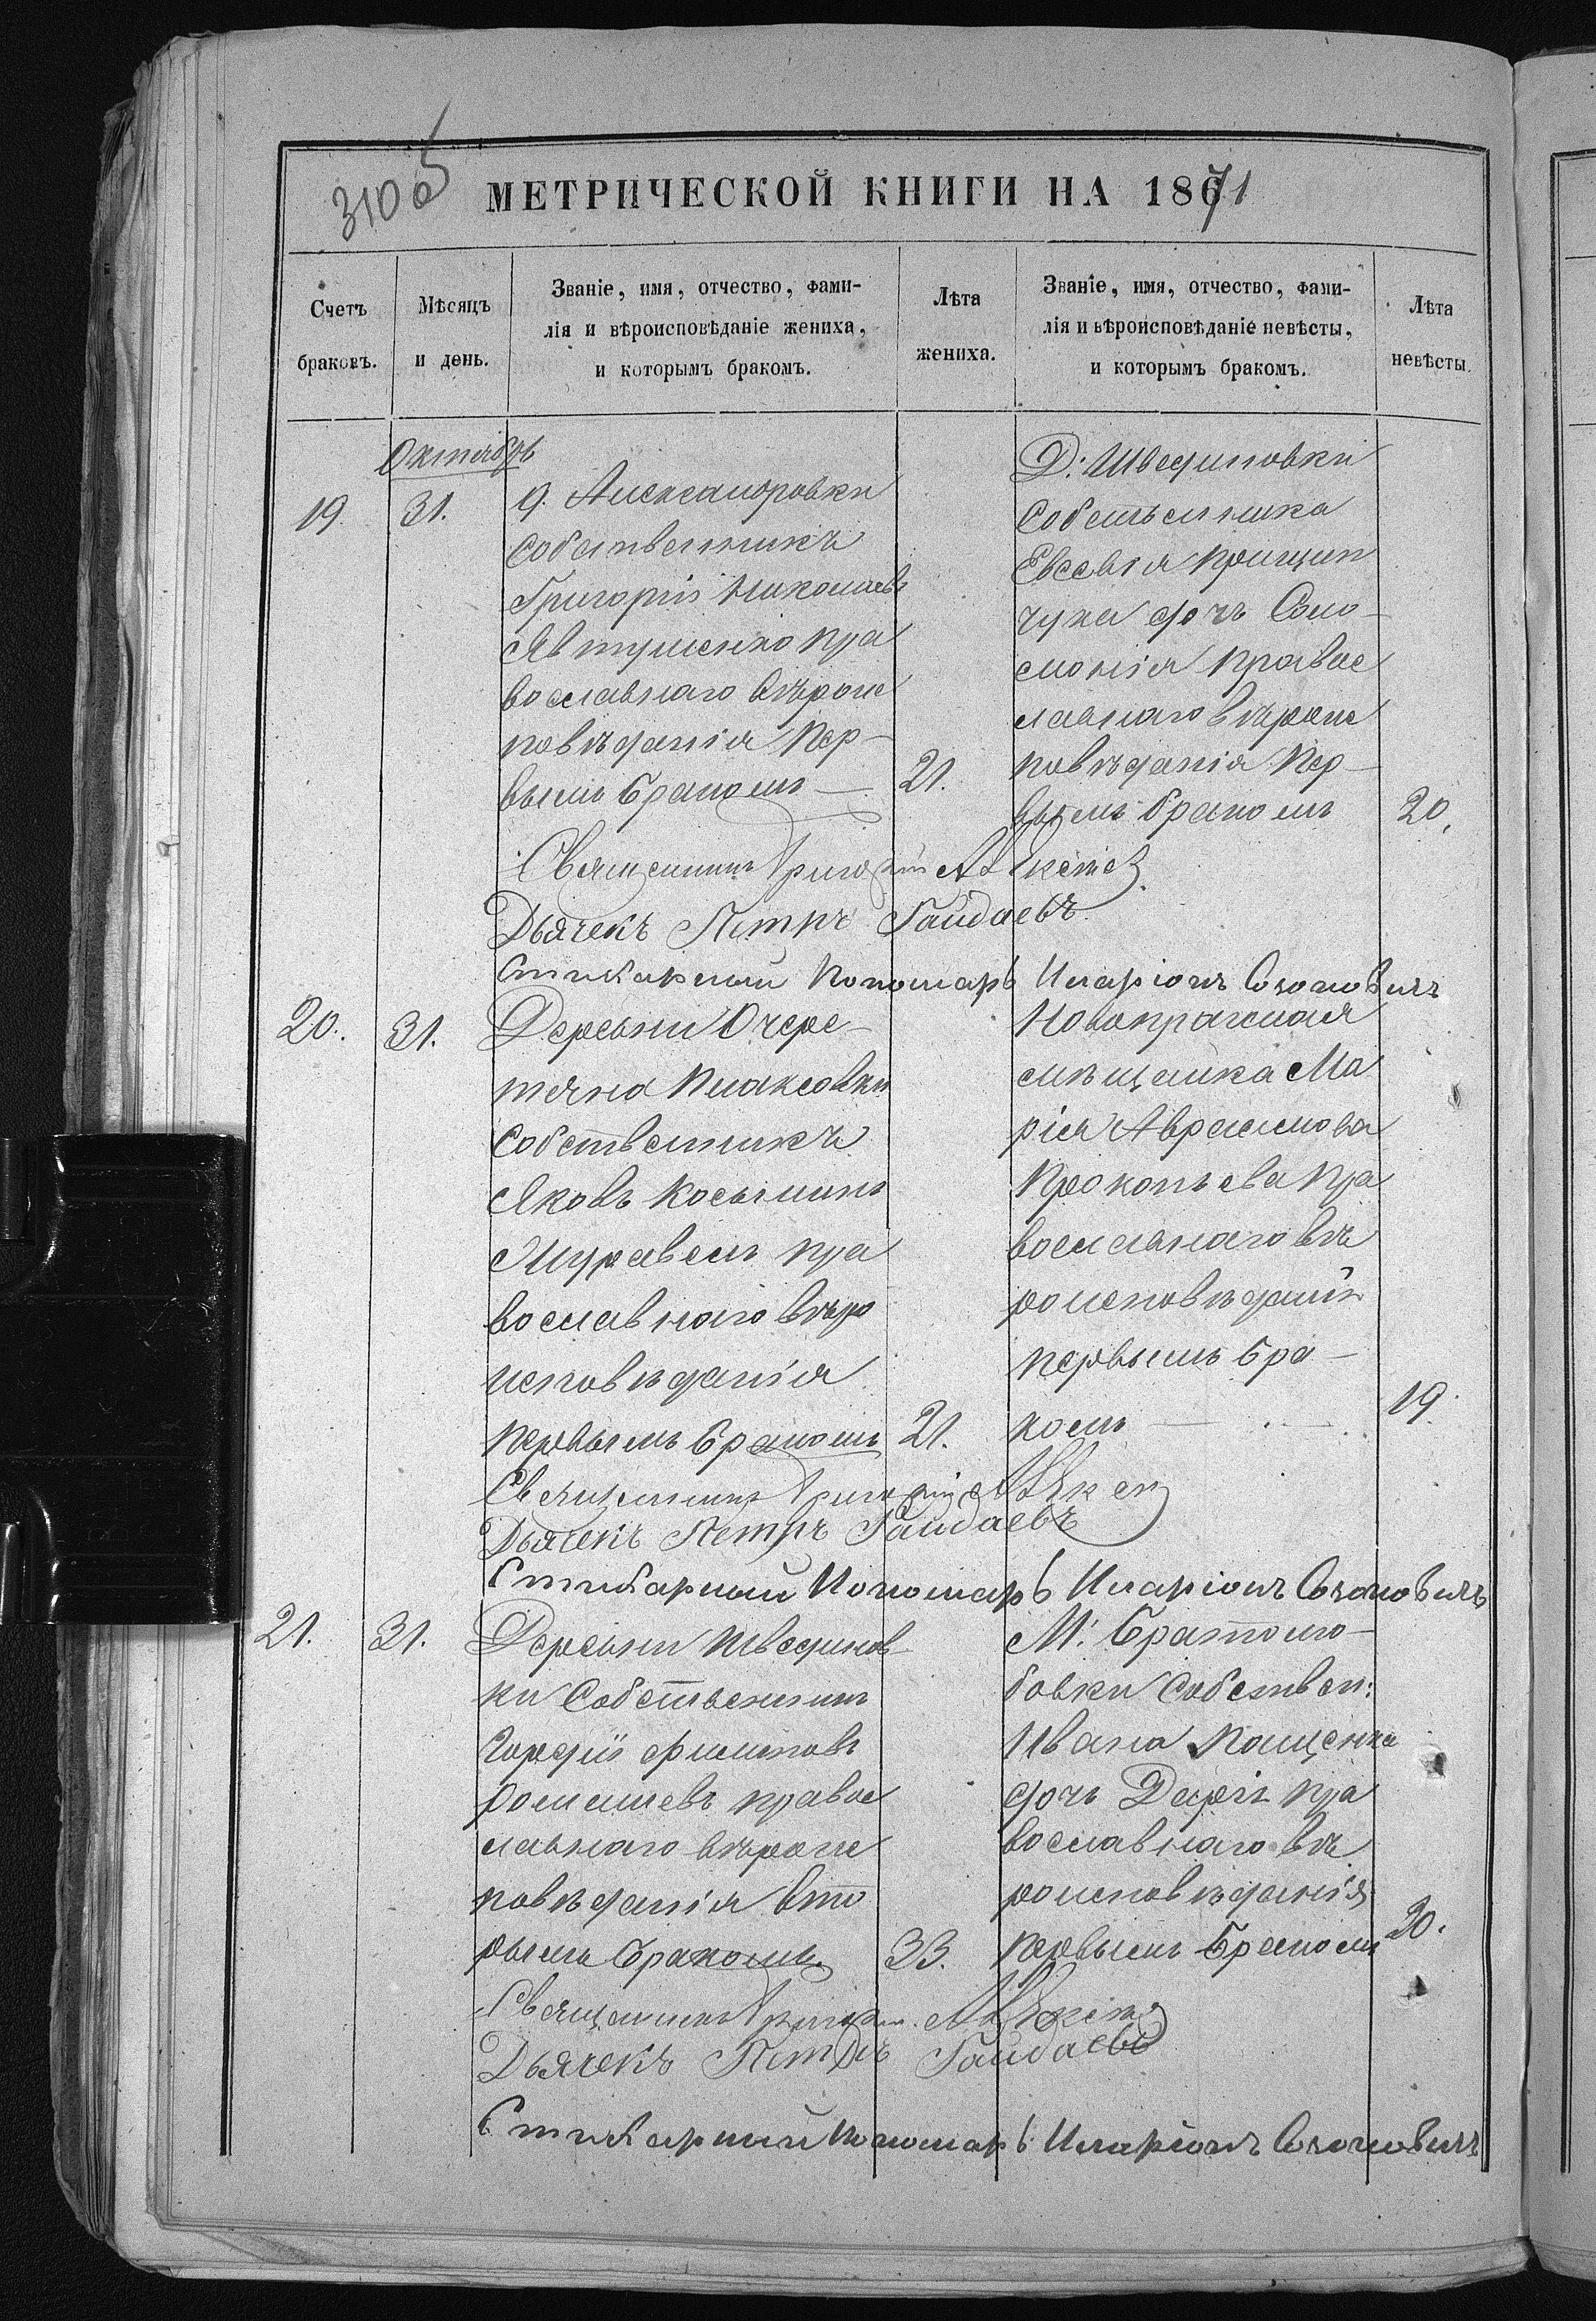 310 об
МЕТРИЧЕСКОЙ КНИГИ НА 1871
Счетъ браковъ.
Мѣсяцъ и день.
Званіе, имя, отчество, фами-
лія и вѣроисповѣданіе жениха,
и которымъ бракомъ.
Лѣта жениха.
Званіе, имя, отчество, фами-
лія и вѣроисповѣданіе невѣсты,
и которымъ бракомъ.
Лѣта невѣсты.
Октябрь
19. 31.
д. Александровки
Собственникъ
Григорій Николаевъ
Явтушенко пра
вославнаго вѣроис
повѣданія пер-
вымъ бракомъ — 21.
Д. Швединовки
Собственника
Евсевія Прищип
чука дочь Соло-
монія правос
лавнаго вѣроис
повѣданія пер-
вымъ бракомъ 20.
Священникъ Григорій
Дьячекъ Петръ Гайдаевъ
Стихарный Пономарь Иларіонъ Созоновичъ
20. 31.
Деревни Очере-
тяна Плаксовки
Собственникъ
Яковъ Косьминъ
Журавель пра
вославнаго вѣро
исповѣданія
первымъ бракомъ 21.
Новопражская
мѣщанка Ма
рія Аврамова
Прокопьева пра
вославнаго вѣ
роисповѣданія
первымъ бра-
комъ — 19.
Священникъ Григорій
Дьячекъ Петръ Гайдаевъ
Стихарный Пономарь Иларіонъ Созоновичъ
21. 31.
Деревни Швединов-
ки Собственникъ
Гордій Филиповъ
правос
лавнаго вѣроис
повѣданія вто
рымъ бракомъ 33.
М. Братолю-
бовки Собствен:
Ивана Пащенка
дочь Дарія пра
вославнаго вѣ
роисповѣданія
первымъ бракомъ 20.
Священникъ Григорій
Дьячекъ Петръ Гайдаевъ
Стихарный Пономарь Иларіонъ Созоновичъ